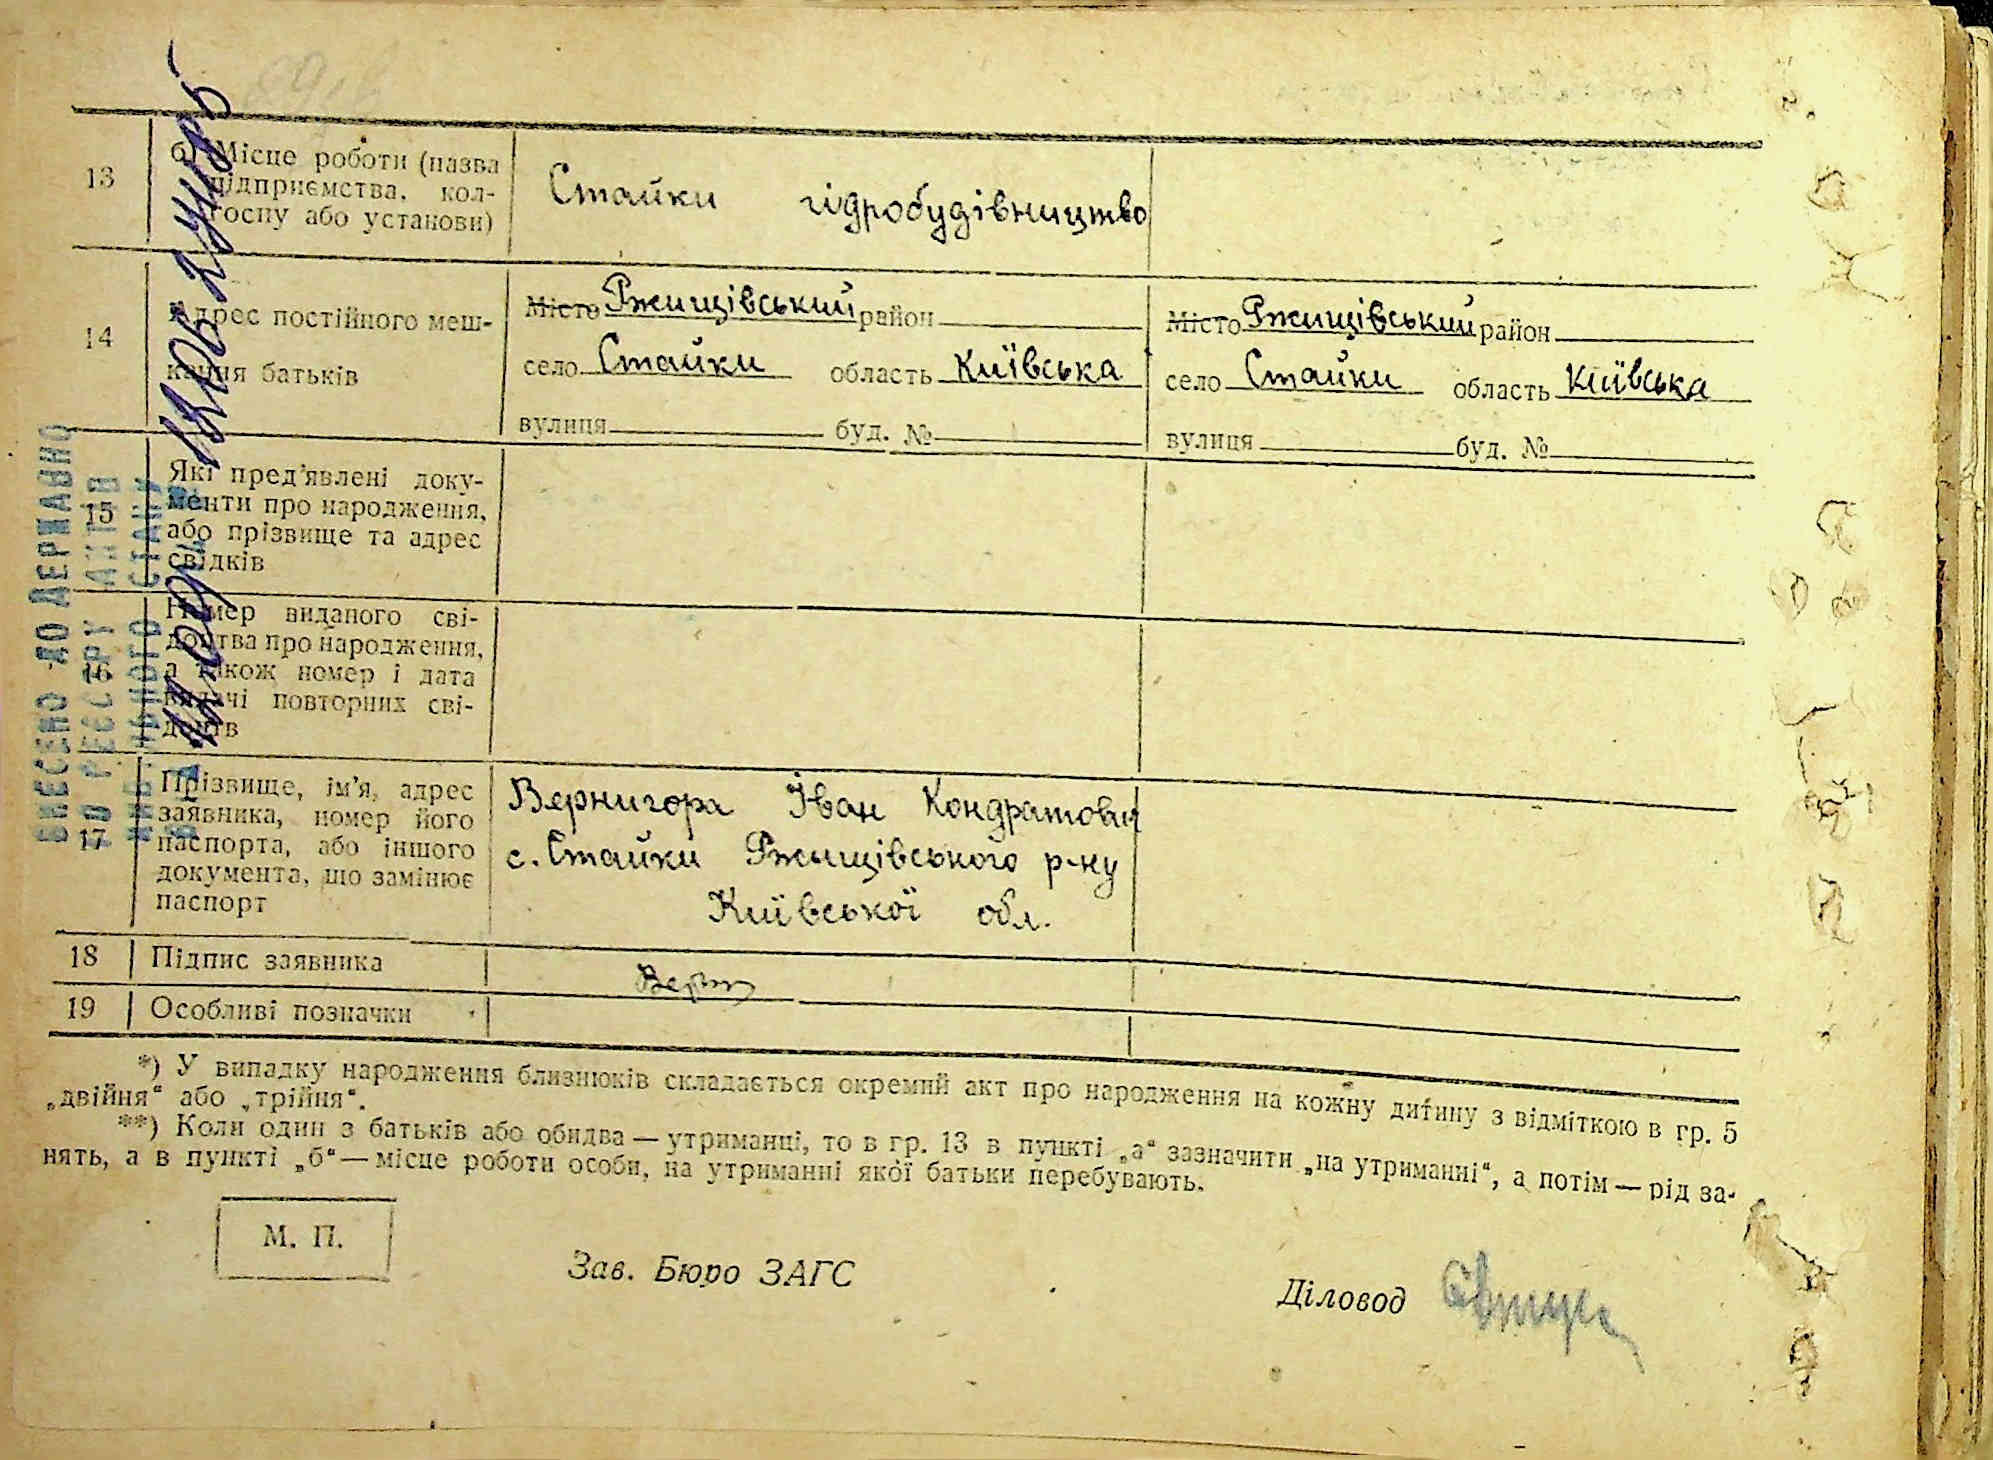 13
б) Місце роботи (назва
підприємства, кол-
госпу або установи)
Стайки гідробудівництво
14
Адрес постійного меш-
кання батьків
Місто Ржищівський район
село Стайки область Київська
вулиця буд. №
Місто Ржищівський район
село Стайки область Київська
вулиця буд. №
15
Які пред'явлені доку-
менти про народження,
або прізвище та адрес
свідків
16
Номер виданого сві-
доцтва про народження,
а також номер і дата
видачі повторних сві-
доцтв
17
Прізвище, ім'я, адрес
заявника, номер його
паспорта, або іншого
документа, що замінює
паспорт
Вернигора Іван Кондратович
с. Стайки Ржищівського р-ну
Київської обл.
18
Підпис заявника
19
Особливі позначки
*) У випадку народження близнюків складається окремий акт про народження на кожну дитину з відміткою в гр. 5
„двійня“ або „трійня“.
**) Коли один з батьків або обидва — утриманці, то в гр. 13 в пункті „а“ зазначити „на утриманні“, а потім — рід за-
нять, а в пункті „б“ — місце роботи особи, на утриманні якої батьки перебувають.
М. П.
Зав. Бюро ЗАГС
Діловод
ВНЕСЕНО ДО ДЕРЖАВНО
ГО РЕЄСТРУ АКТІВ
СТАНУ